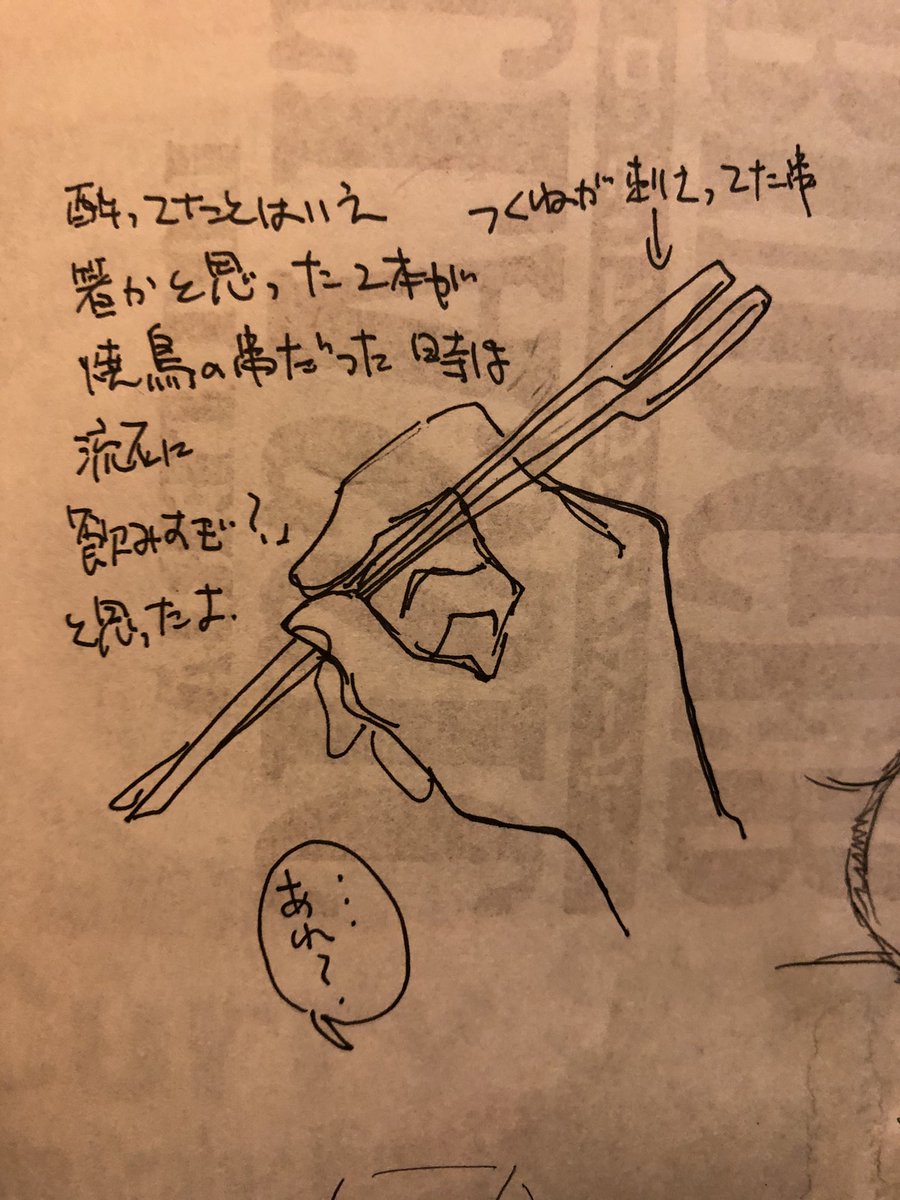 酔ってたとはいえ
箸かと思った2本が
焼鳥の串だった時は
流石に
「飲みすぎ?」
と思ったよ.
つくねが刺さってた串
↓
…あれ?